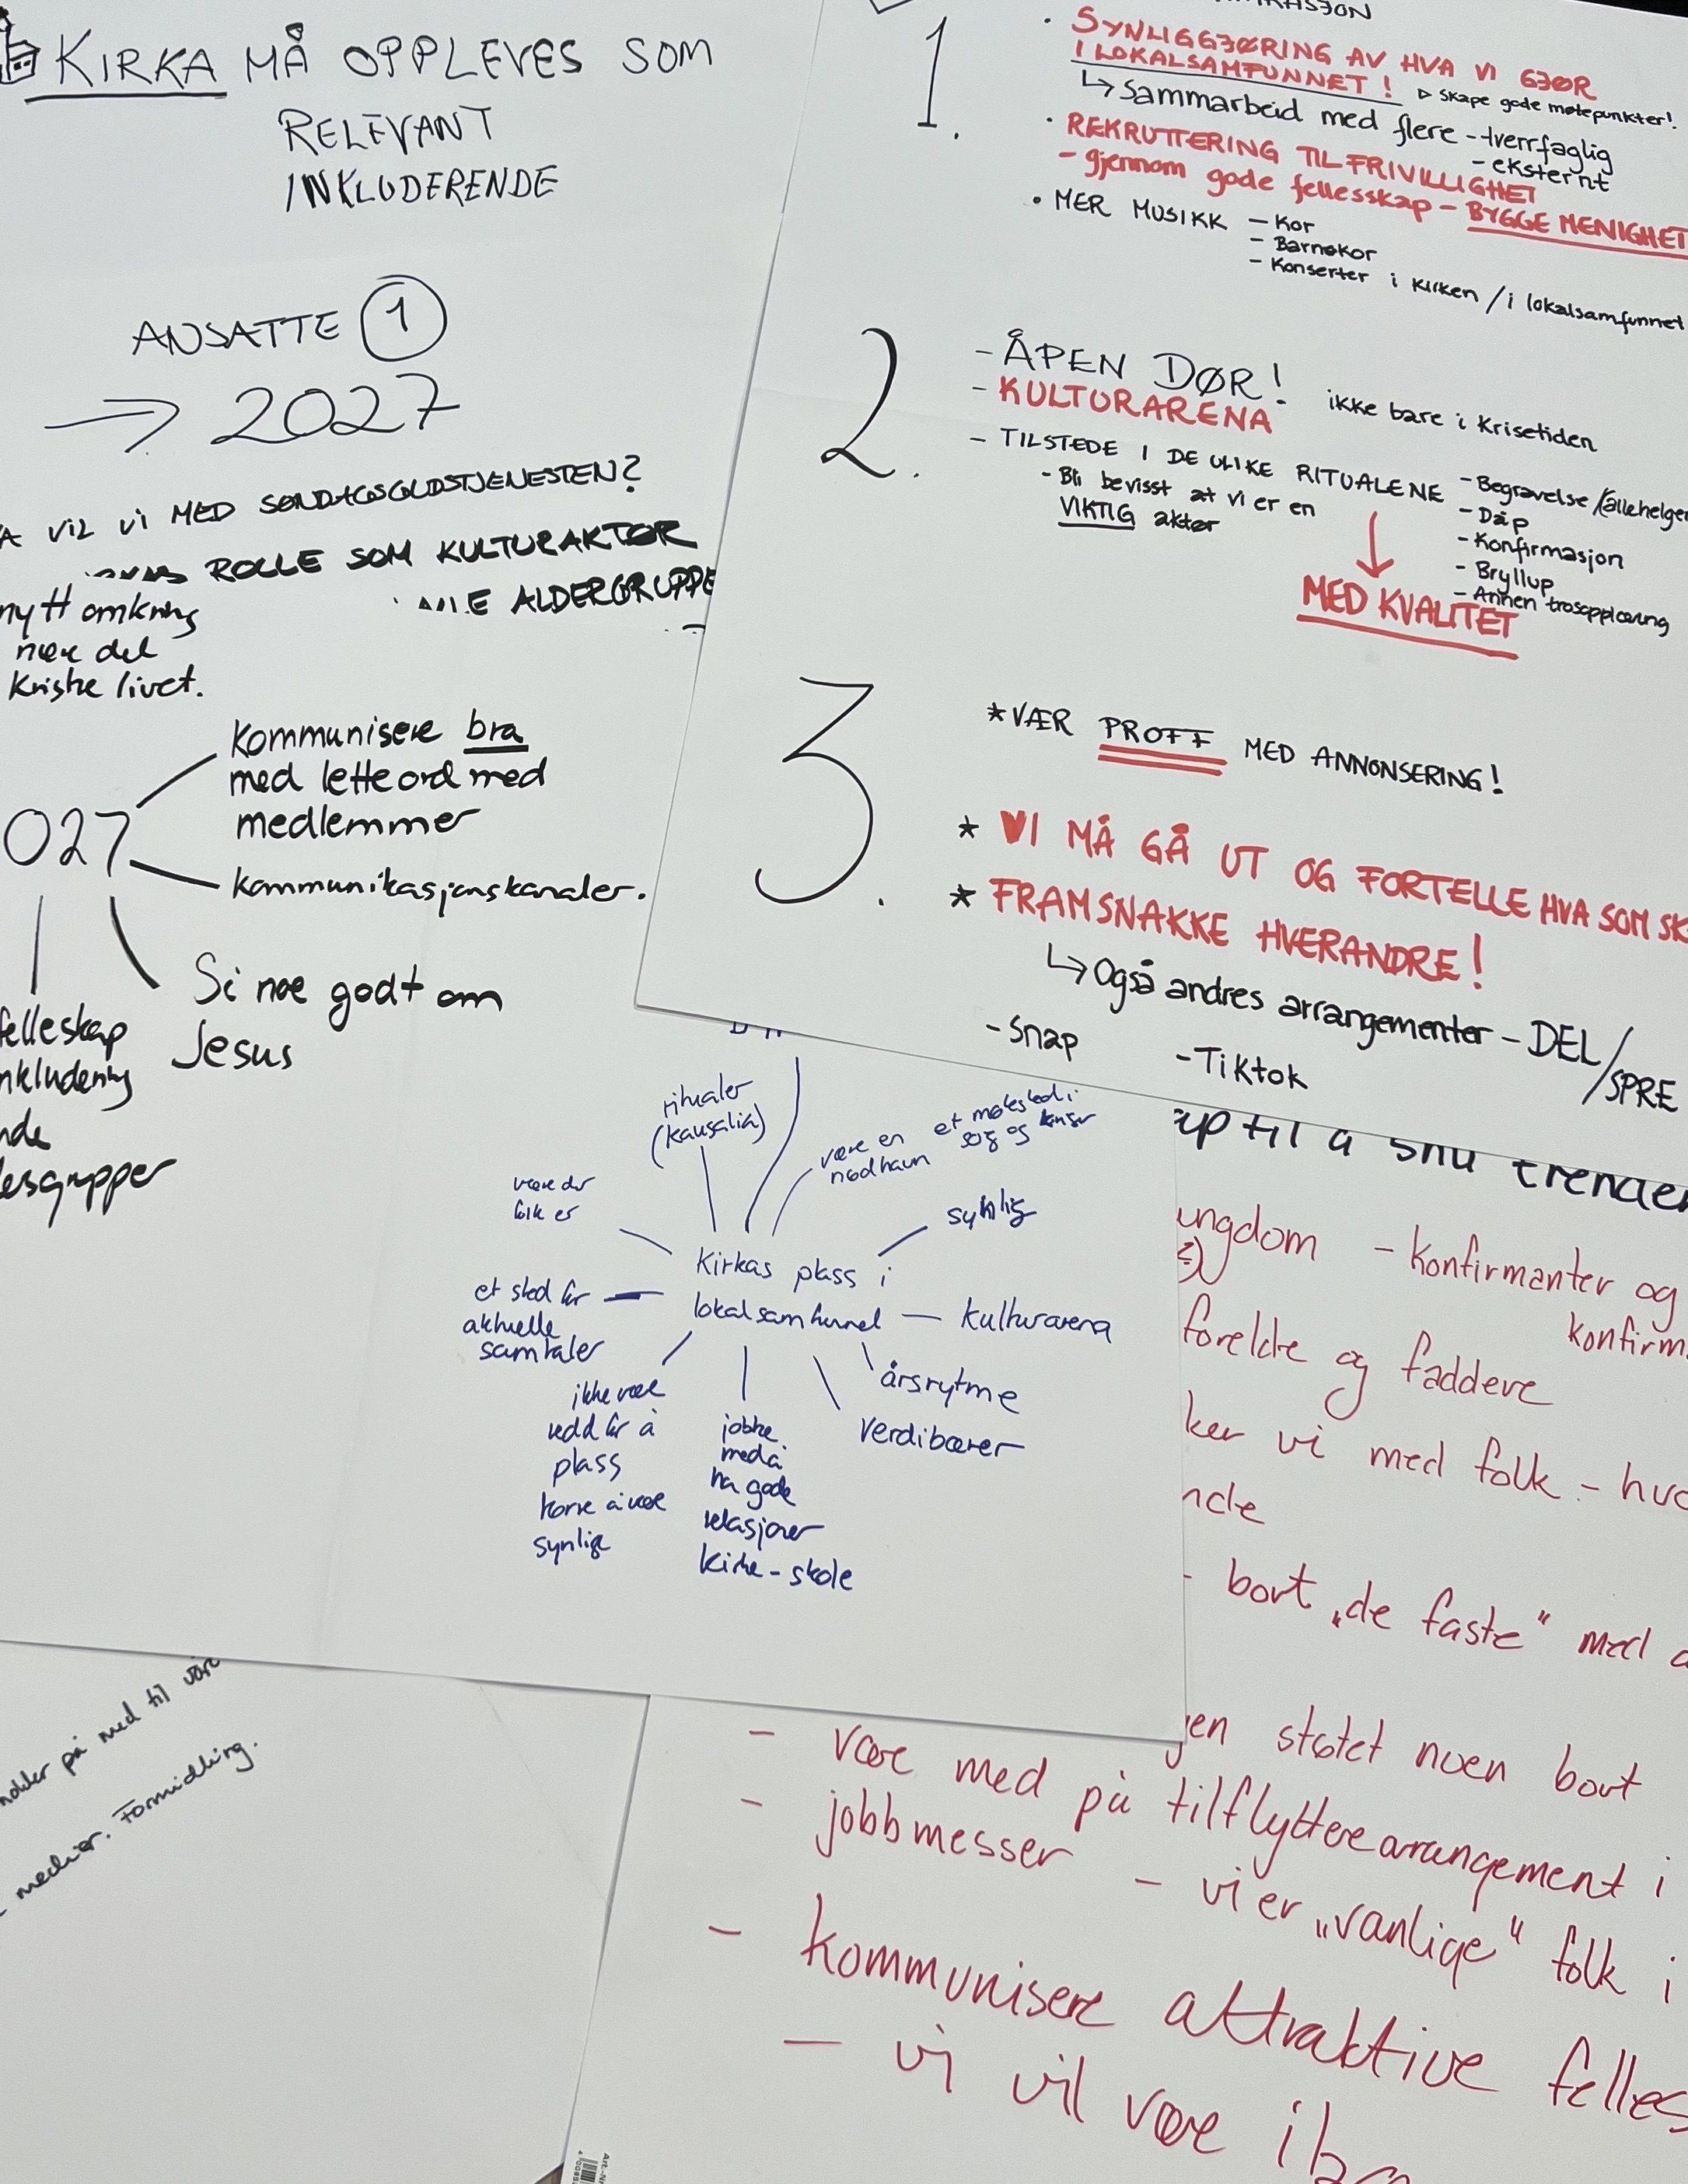 KIRKA MÅ OPPLEVES SOM
RELEVANT
INKLUDERENDE
ANSATTE 1
→ 2027
VIL VI MED SØNDAGSGUDSTJENESTEN?
ROLLE SOM KULTURAKTØR
ALDERGRUPPE
nytt omkring
nære det
Kristne livet.
027
Kommunisere bra
med lette ord med
medlemmer
kommunikasjonskanaler.
Si noe godt om
Jesus
felleskap
nkludering
nde
esgrupper
1.
• SYNLIGGJØRING AV HVA VI GJØR
I LOKALSAMFUNNET!
▷ Skape gode møtepunkter!
↳ Sammarbeid med flere - tverrfaglig
- eksternt
• REKRUTTERING TIL FRIVILLIGHET
- gjennom gode fellesskap - BYGGE MENIGHET
• MER MUSIKK - Kor
- Barnekor
- Konserter i kirken / i lokalsamfunnet
2.
- ÅPEN DØR! ikke bare i Krisetiden
- KULTURARENA
- TILSTEDE I DE ULIKE RITUALENE - Begravelse / allehelgen
- Bli bevisst at vi er en
VIKTIG aktør
- Dåp
- Konfirmasjon
- Bryllup
- Annen trosopplæring
MED KVALITET
3.
* VÆR PROFF MED ANNONSERING!
* VI MÅ GÅ UT OG FORTELLE HVA SOM SK
* FRAMSNAKKE HVERANDRE!
↳ Også andres arrangementer - DEL/SPRE
- Snap - Tiktok
ritualer
(kausalia)
være en
nødhavn
et møtested i
sorg og kriser
være der
folk er
synlig
Kirkas plass i
lokalsamfunnet
et sted for
aktuelle
samtaler
kulturarena
årsrytme
verdibærer
ikke være
redd for å
plass
tørre å være
synlige
jobbe
med å
ha gode
relasjoner
Kirke - skole
til å snu trenden
ungdom - konfirmanter og
konfirm
foreldre og faddere
ker vi med folk - hvo
nde
- bort „de faste" med
gen støtet noen bort
- være med på tilflyttere arrangement i
- jobbmesser - vi er „vanlige" folk i
- kommunisere attraktive felles
- vi vil være i
holder på med til våre
medier. Formidling.